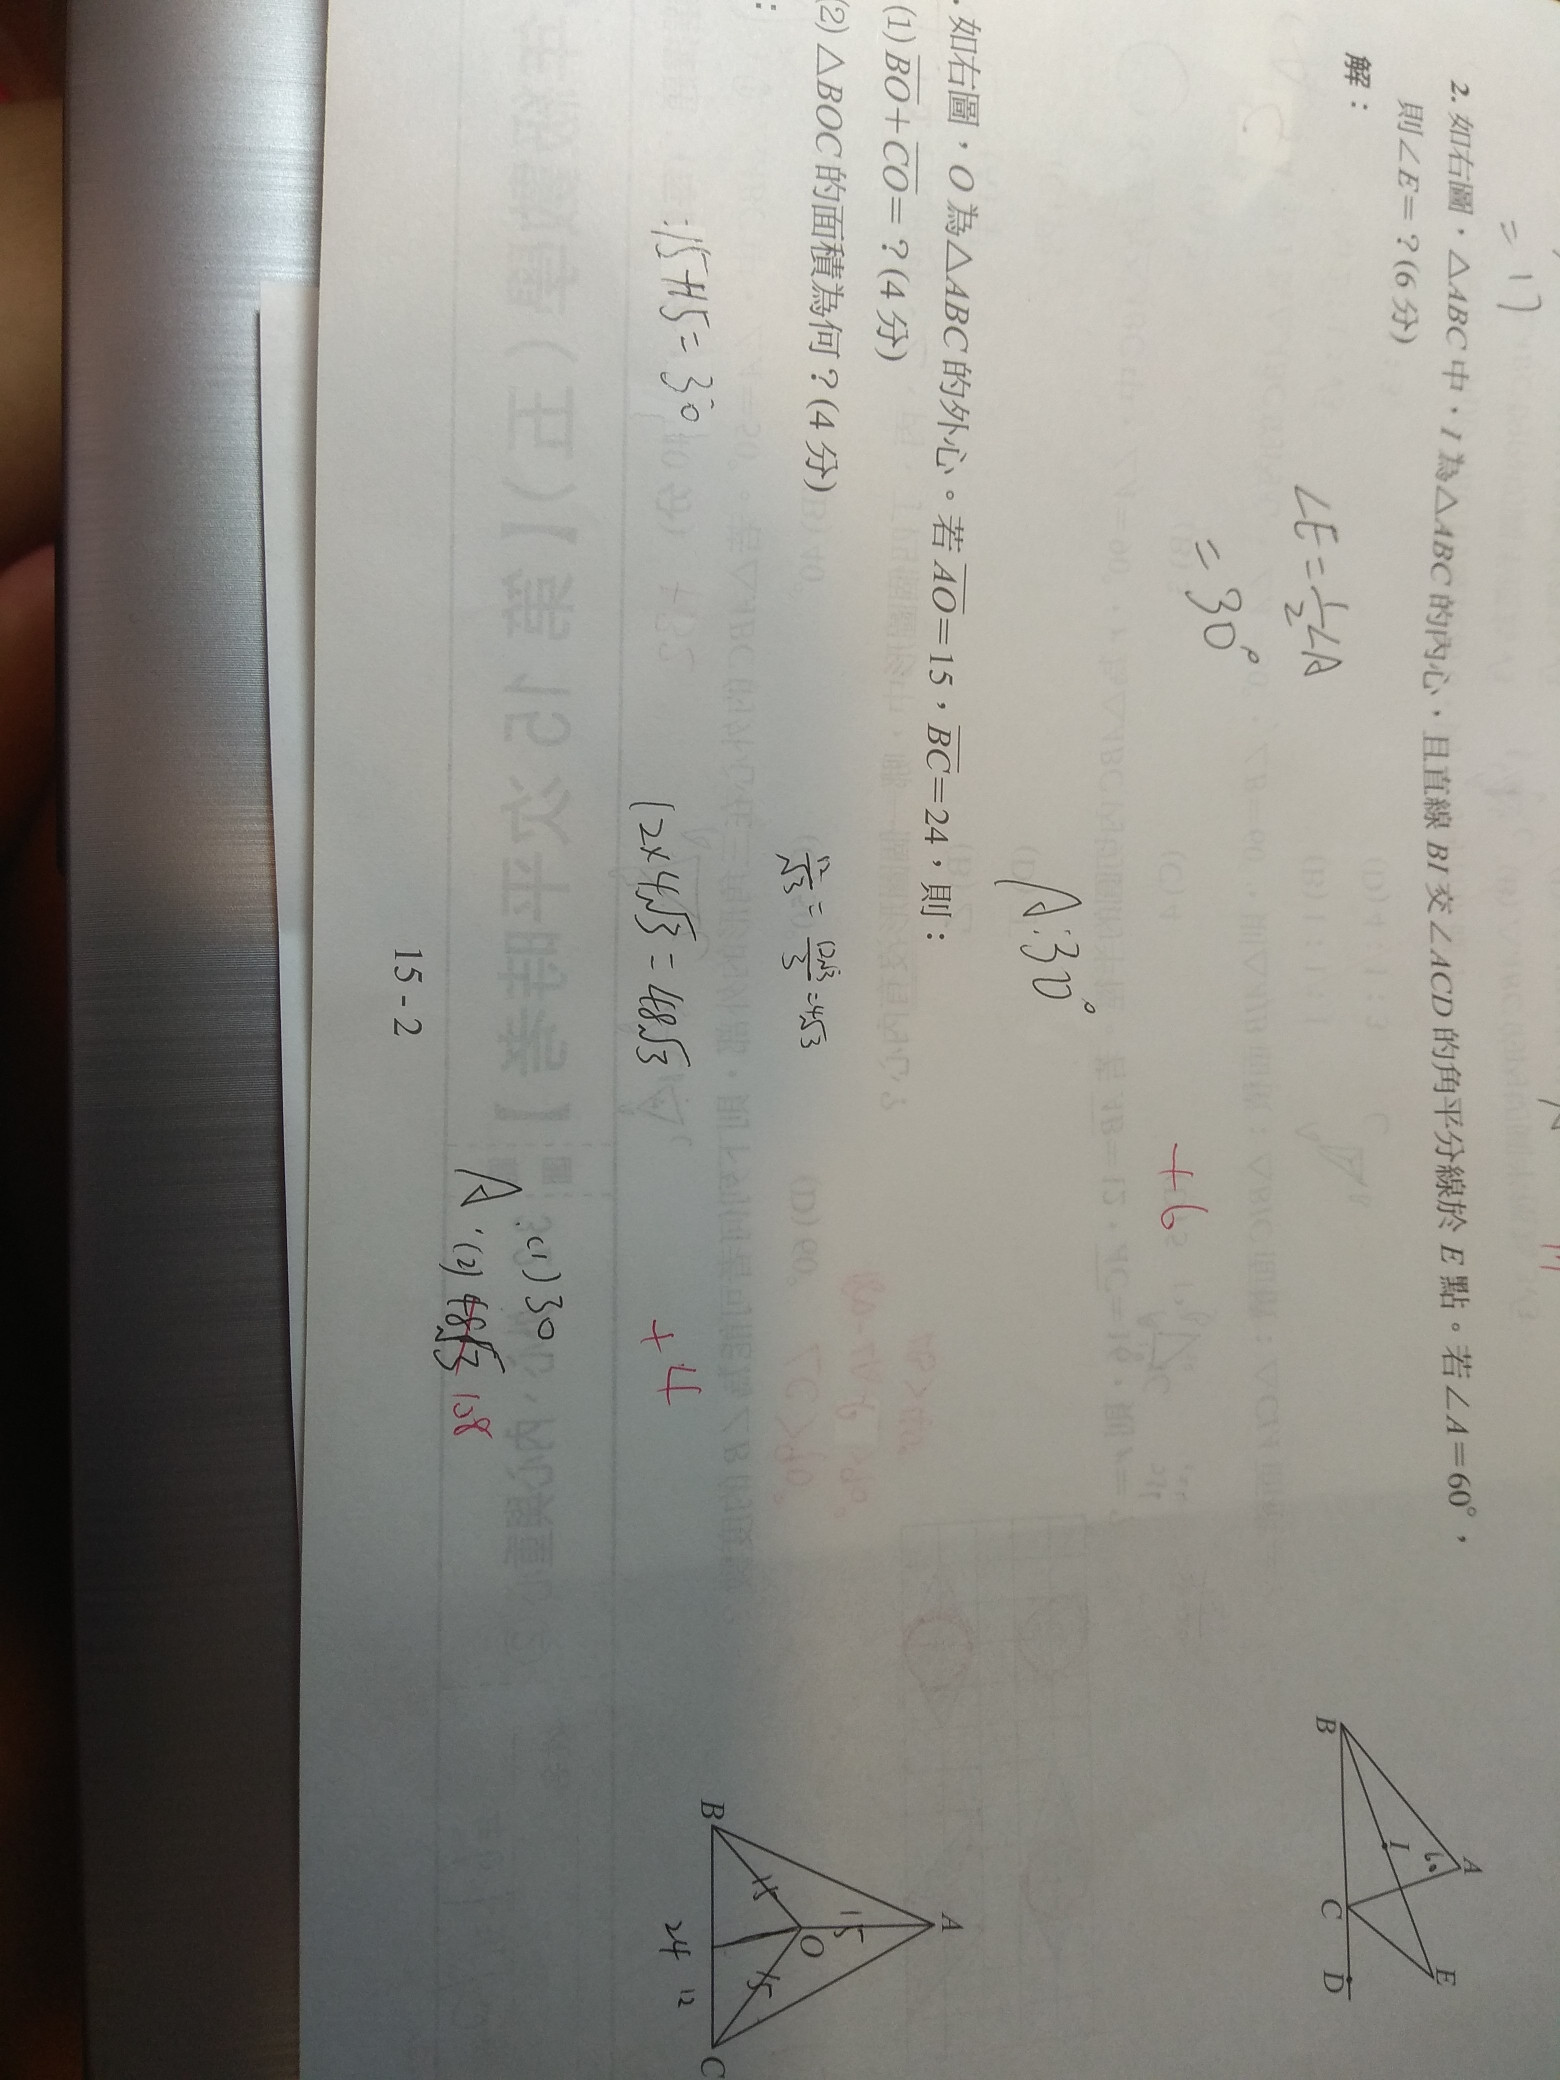 = 17
2. 如右圖，△ABC中，I為△ABC的內心，且直線BI交∠ACD的角平分線於E點。若∠A=60°，
則∠E=？(6分)
解：
∠E=1/2∠A
=30°
A:30°
+6
A
60
I
E
B
C
D
. 如右圖，O為△ABC的外心。若AO=15，BC=24，則：
(1) BO+CO=？(4分)
(2) △BOC的面積為何？(4分)
:
12/√3=12√3/3=4√3
:15+15=30
12×4√3=48√3
+4
A:(1)30
(2)48√3 108
A
15
O
15
15
B
24
12
C
15-2